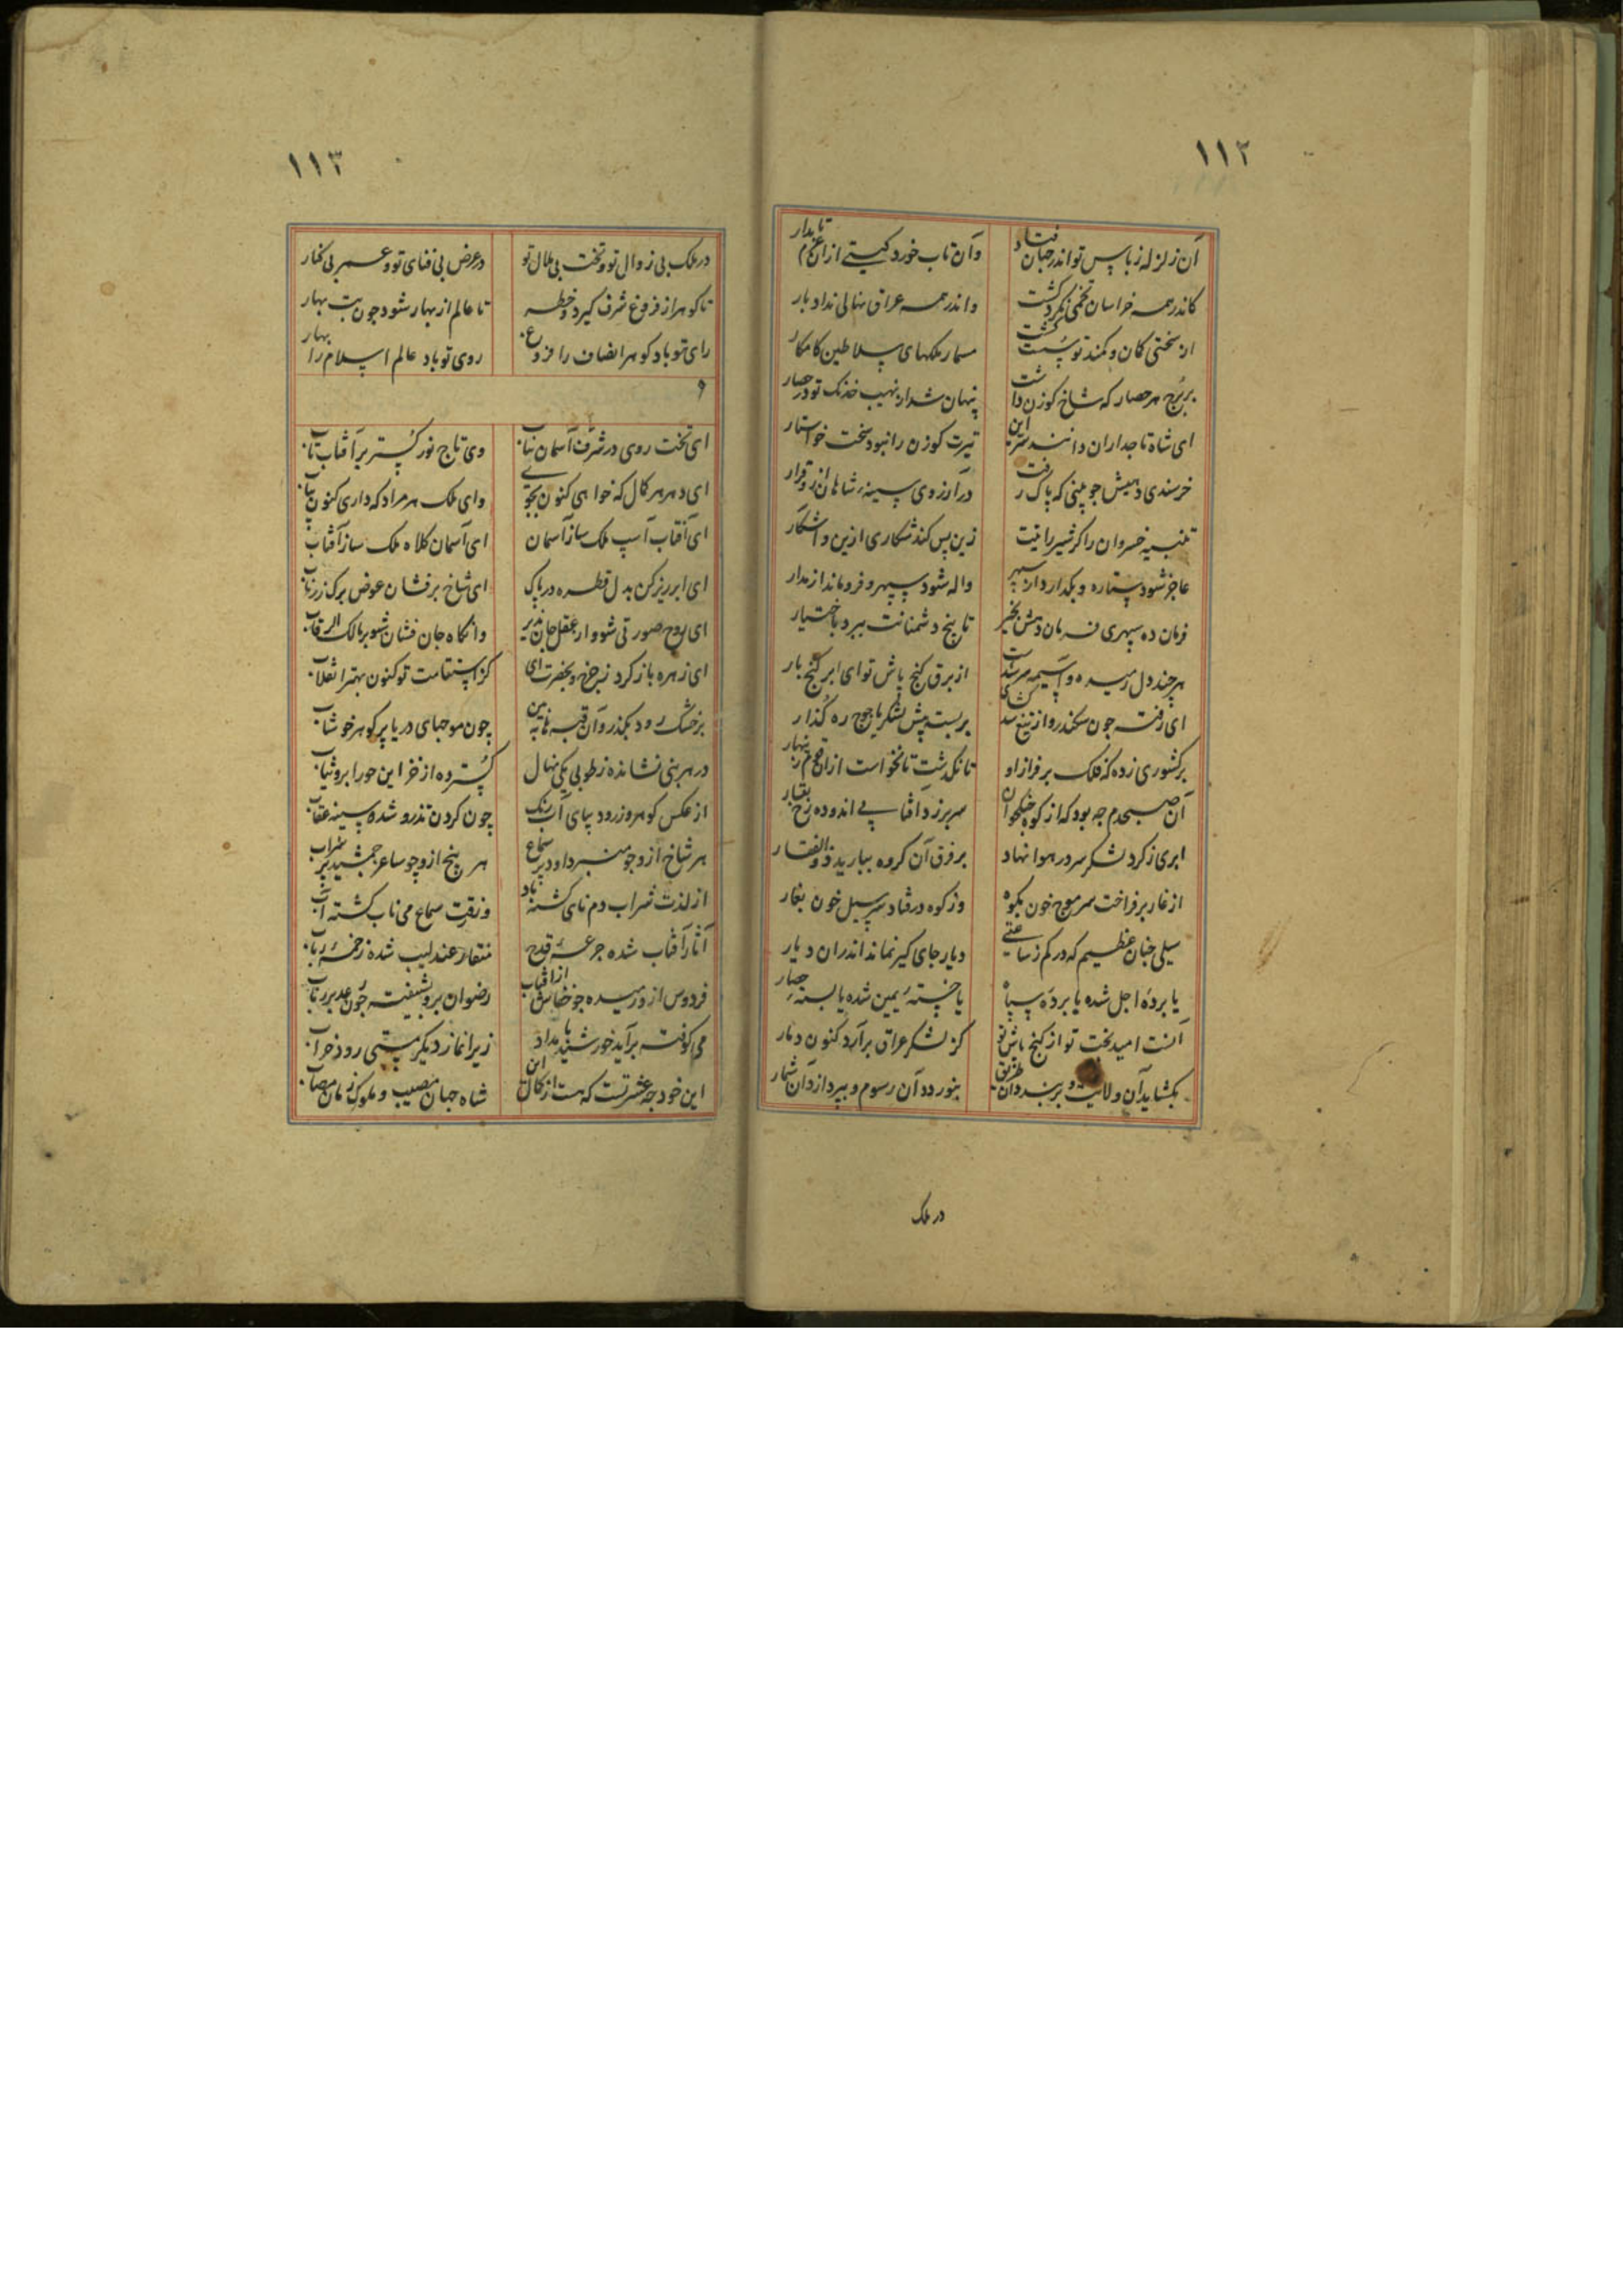 ١١٢
آن زلزله ز باس تو اندر جهان فتاد وآن تاب خورد کیتی از ان عزم تابدار
کاندر همه خراسان تخمی نکرد کشت واندر همه عراق نهالی نداد بار
از سختی کمان و کمند تو پست کشت مسمار ملکهای سلاطین کامکار
بر برج هر حصار که شاخ کوزن داشت پنهان شد از نهیب خدنک تو در حصار
ای شاه تاجداران دانند سر این تیرت کوزن را نبود سخت خواستار
در آرزوی سینه شاهان
زین پس کند شکاری ازین و آشکار
عاجز شود ستاره و بکدارد از سپهر واله شود سپهر و فروماند از مدار
فرمان ده سپهری فرمان دهش بخیر تا رنج دشمنانت ببرد باختیار
هر چند دل رمیده و آسیمه سر شدست از برق کنج پاش تو ای ابر کنج بار
ای رفته چون سکندر و از تیغ سد کشای بر بست پیش لشکر یاجوج ره کذار
بر کشوری زده که فلک بر فراز او تا نکذشت تا نخواست از ان قوم زینهار
آن صبحدم چه بود که از کوه سر برزد آفتابی اندوده رخ بقار
ابری ز کرد لشکر سر در هوا نهاد بر فرق آن کروه ببارید ذوالفقار
از غار بر فراخت سر موج خون بکوه وز کوه در فتاد سر سیل خون بغار
سیلی چنان عظیم که در کم ز ساعتی دیار جای کیر نماند اندران دیار
یا برده اجل شده یا برده سپاه یا خسته یمین شده یا بسته حصار
آنست امید بخت تو از کنج پاش تو کز لشکر عراق برآرد کنون دمار
بکشاید آن ولایت و بربندد آن طریق بنوردد آن رسوم و بپردازد آن شمار
در ملک
١١٣
در ملک بی زوال تو و تخت بی ملال تو در عرض بی فنای تو و عمر بی کنار
تا کوهر از فروغ شرف کیرد و خطر تا عالم از بهار شود چون بت بهار
رای تو باد کوهر انصاف را فروغ روی تو باد عالم اسلام را بهار
و
ای تخت روی در شرف آسمان بتاب وی تاج نور کستر بر آفتاب تاب
ای دهر هر کمال که خواهی کنون بجوی وای ملک هر مراد که داری کنون بیاب
ای آفتاب اسپ ملک ساز آسمان ای آسمان کلاه ملک ساز آفتاب
ای ابر ریز کن بدل قطره در پاک ای شاخ برفشان عوض برک زر ناب
ای روح صورتی شو و از عقل جان پذیر وانکاه جان فشان شو بر مالک الرقاب
ای زهره باز کرد ز چرخ و بحضرت آی کز استقامت تو کنون بهتر انقلاب
بر خشک رود بکذر و آن قبها ببین چون موجهای دریا پر کوهر خوشاب
در هر بنی نشانده ز طوبی یکی نهال کسترده از خز این حورا برو ثیاب
از عکس کوهر و زر و دیبای آب رنک چون کردن تذرو شده سینه عقاب
هر شاخ ازو چو منبر داود پر سماع هر پنج ازو چو ساغر جمشید پر شراب
از لذت شراب دم نای کشته باد وز رقت سماع می ناب کشته آب
آثار آفتاب شده جرعه قدح منقار عندلیب شده زخمه رباب
فردوس ازو رمیده چو خفاش از آفتاب رضوان برو شیفته چون
می کوفته برآید خورشید بامداد زیرا نماز دیکر مستی رود خراب
این خود چه عشرتست که هست از کمال این شاه جهان مصیب و ملوک زمان مصاب